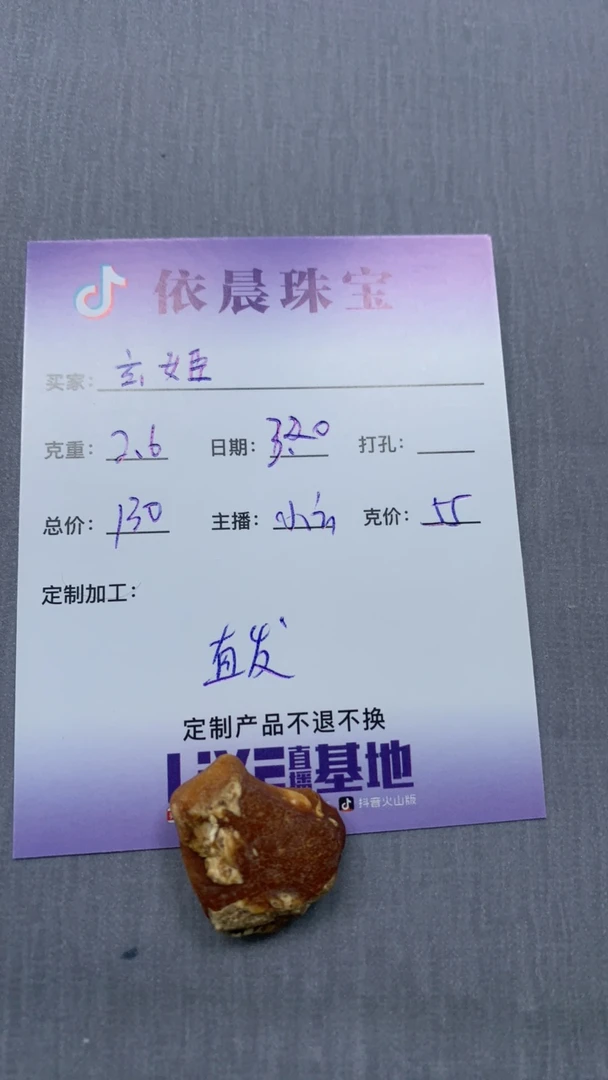 依晨珠宝
买家：玄姬
克重：2.6 日期：3.20 打孔：
总价：130 主播： 克价：55
定制加工：
直发
定制产品不退不换
LIVE直播基地
抖音火山版